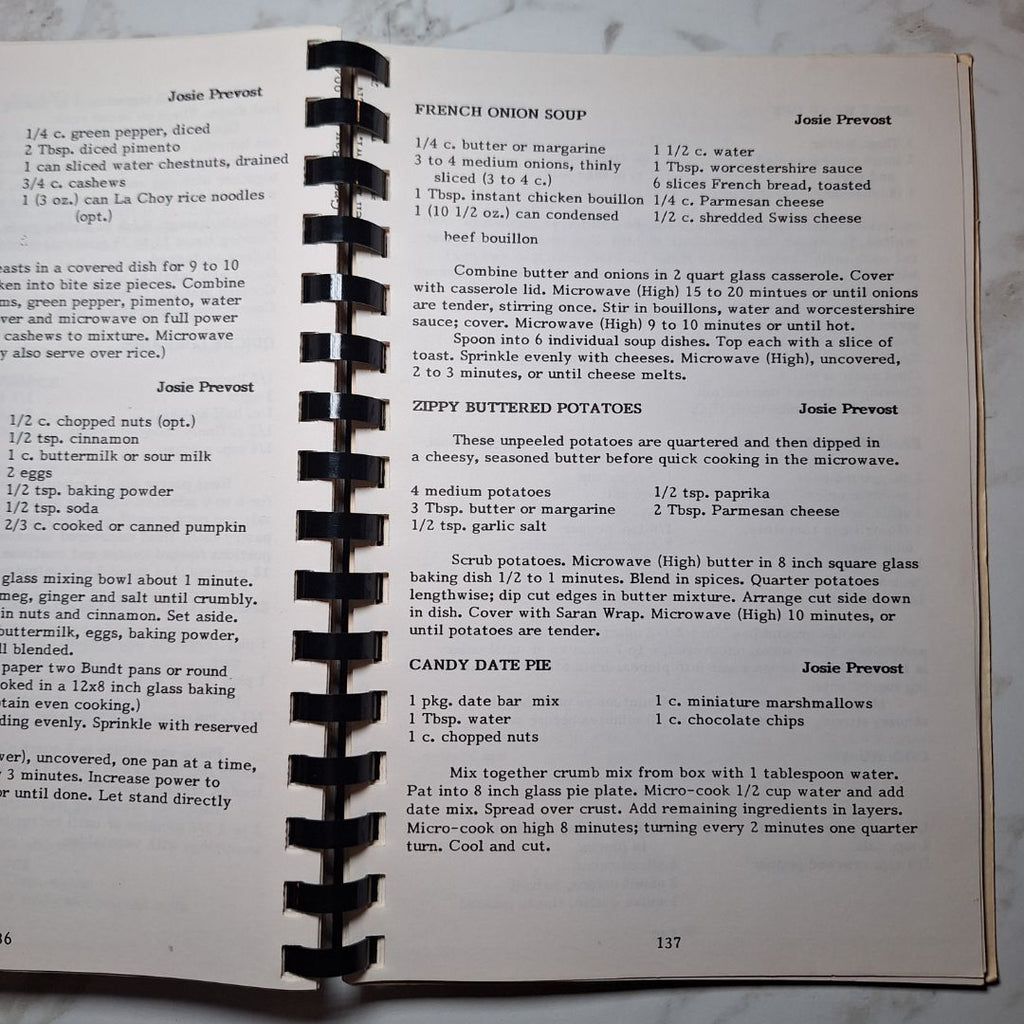 Josie Prevost
1/4 c. green pepper, diced
2 Tbsp. diced pimento
1 can sliced water chestnuts, drained
3/4 c. cashews
1 (3 oz.) can La Choy rice noodles
(opt.)
in a covered dish for 9 to 10
into bite size pieces. Combine
green pepper, pimento, water
and microwave on full power
cashews to mixture. Microwave
also serve over rice.)
Josie Prevost
1/2 c. chopped nuts (opt.)
1/2 tsp. cinnamon
1 c. buttermilk or sour milk
2 eggs
1/2 tsp. baking powder
1/2 tsp. soda
2/3 c. cooked or canned pumpkin
glass mixing bowl about 1 minute.
ginger and salt until crumbly.
in nuts and cinnamon. Set aside.
buttermilk, eggs, baking powder,
blended.
paper two Bundt pans or round
in a 12x8 inch glass baking
even cooking.)
evenly. Sprinkle with reserved
uncovered, one pan at a time,
3 minutes. Increase power to
or until done. Let stand directly
FRENCH ONION SOUP
Josie Prevost
1/4 c. butter or margarine
3 to 4 medium onions, thinly
sliced (3 to 4 c.)
1 Tbsp. instant chicken bouillon
1 (10 1/2 oz.) can condensed
beef bouillon
1 1/2 c. water
1 Tbsp. worcestershire sauce
6 slices French bread, toasted
1/4 c. Parmesan cheese
1/2 c. shredded Swiss cheese
Combine butter and onions in 2 quart glass casserole. Cover
with casserole lid. Microwave (High) 15 to 20 mintues or until onions
are tender, stirring once. Stir in bouillons, water and worcestershire
sauce; cover. Microwave (High) 9 to 10 minutes or until hot.
Spoon into 6 individual soup dishes. Top each with a slice of
toast. Sprinkle evenly with cheeses. Microwave (High), uncovered,
2 to 3 minutes, or until cheese melts.
ZIPPY BUTTERED POTATOES
Josie Prevost
These unpeeled potatoes are quartered and then dipped in
a cheesy, seasoned butter before quick cooking in the microwave.
4 medium potatoes
3 Tbsp. butter or margarine
1/2 tsp. garlic salt
1/2 tsp. paprika
2 Tbsp. Parmesan cheese
Scrub potatoes. Microwave (High) butter in 8 inch square glass
baking dish 1/2 to 1 minutes. Blend in spices. Quarter potatoes
lengthwise; dip cut edges in butter mixture. Arrange cut side down
in dish. Cover with Saran Wrap. Microwave (High) 10 minutes, or
until potatoes are tender.
CANDY DATE PIE
Josie Prevost
1 pkg. date bar mix
1 Tbsp. water
1 c. chopped nuts
1 c. miniature marshmallows
1 c. chocolate chips
Mix together crumb mix from box with 1 tablespoon water.
Pat into 8 inch glass pie plate. Micro-cook 1/2 cup water and add
date mix. Spread over crust. Add remaining ingredients in layers.
Micro-cook on high 8 minutes; turning every 2 minutes one quarter
turn. Cool and cut.
137